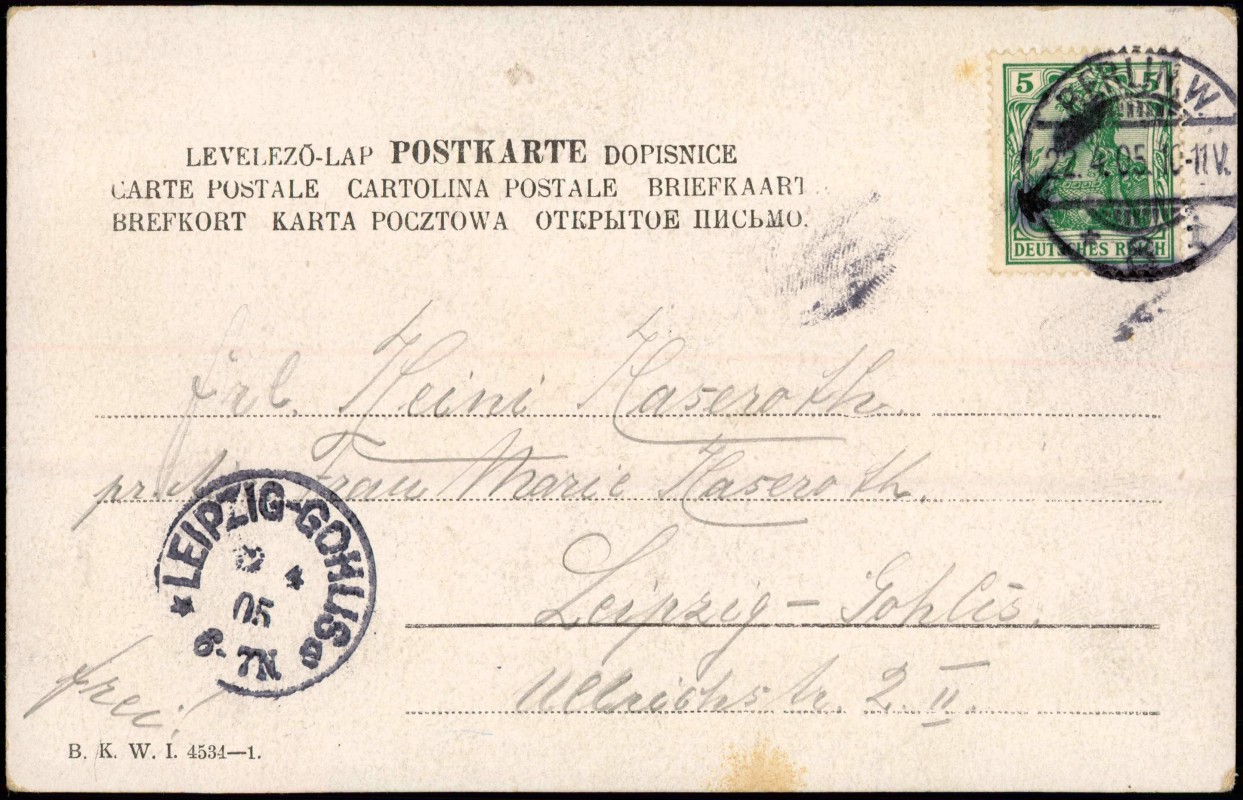 LEVELEZŐ-LAP POSTKARTE DOPISNICE
CARTE POSTALE CARTOLINA POSTALE BRIEFKAART
BREFKORT KARTA POCZTOWA ОТКРЫТОЕ ПИСЬМО.
5 5
DEUTSCHES REICH
BERLIN. W.
22. 4. 05. 10-11 V.
* 8
Frl. Heini Haseroth.
Frau Marie Haseroth.
Leipzig - Gohlis.
Ullrichstr. 2 II.
* LEIPZIG-GOHLIS
4
05
6-7N
frei!
B. K. W. I. 4534—1.